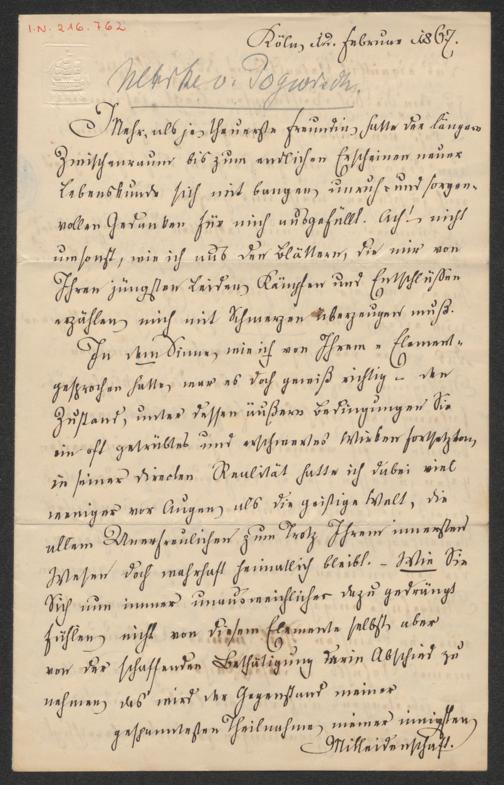 I.N. 216.762
Köln, 12. Februar 1867.
Ulrike v. Pogwisch.
Mehr, als je, theuerste Freundin, hatte der längere
Zwischenraum bis zum endlichen Erscheinen neuer
Lebenskunde sich mit bangen, unruh- und sorgen-
vollen Gedanken für mich ausgefüllt. Ach! nicht
umsonst, wie ich aus den Blättern, die mir von
Ihren jüngsten Leiden, Kämpfen und Entschlüßen
erzählen, mich mit Schmerzen überzeugen muß.
In dem Sinne, wie ich von Ihrem „Element“
gesprochen hatte, war es doch gewiß richtig – den
Zustand, unter dessen äußern Bedingungen Sie
ein oft getrübtes und erschwertes Wirken fortsetzten,
in seiner directen Realität hatte ich dabei viel
weniger vor Augen, als die geistige Welt, die
allem Unerfreulichen zum Trotz Ihrem innersten
Wesen doch wahrhaft heimatlich bleibt. – Wie Sie
Sich nun immer unausweichlicher dazu gedrängt
fühlen, nicht von diesem Elemente selbst, aber
von der schaffenden Bethätigung darin Abschied zu
nehmen, das wird der Gegenstand meiner
gespanntesten Theilnahme, meiner innigsten
Mitleidenschaft.